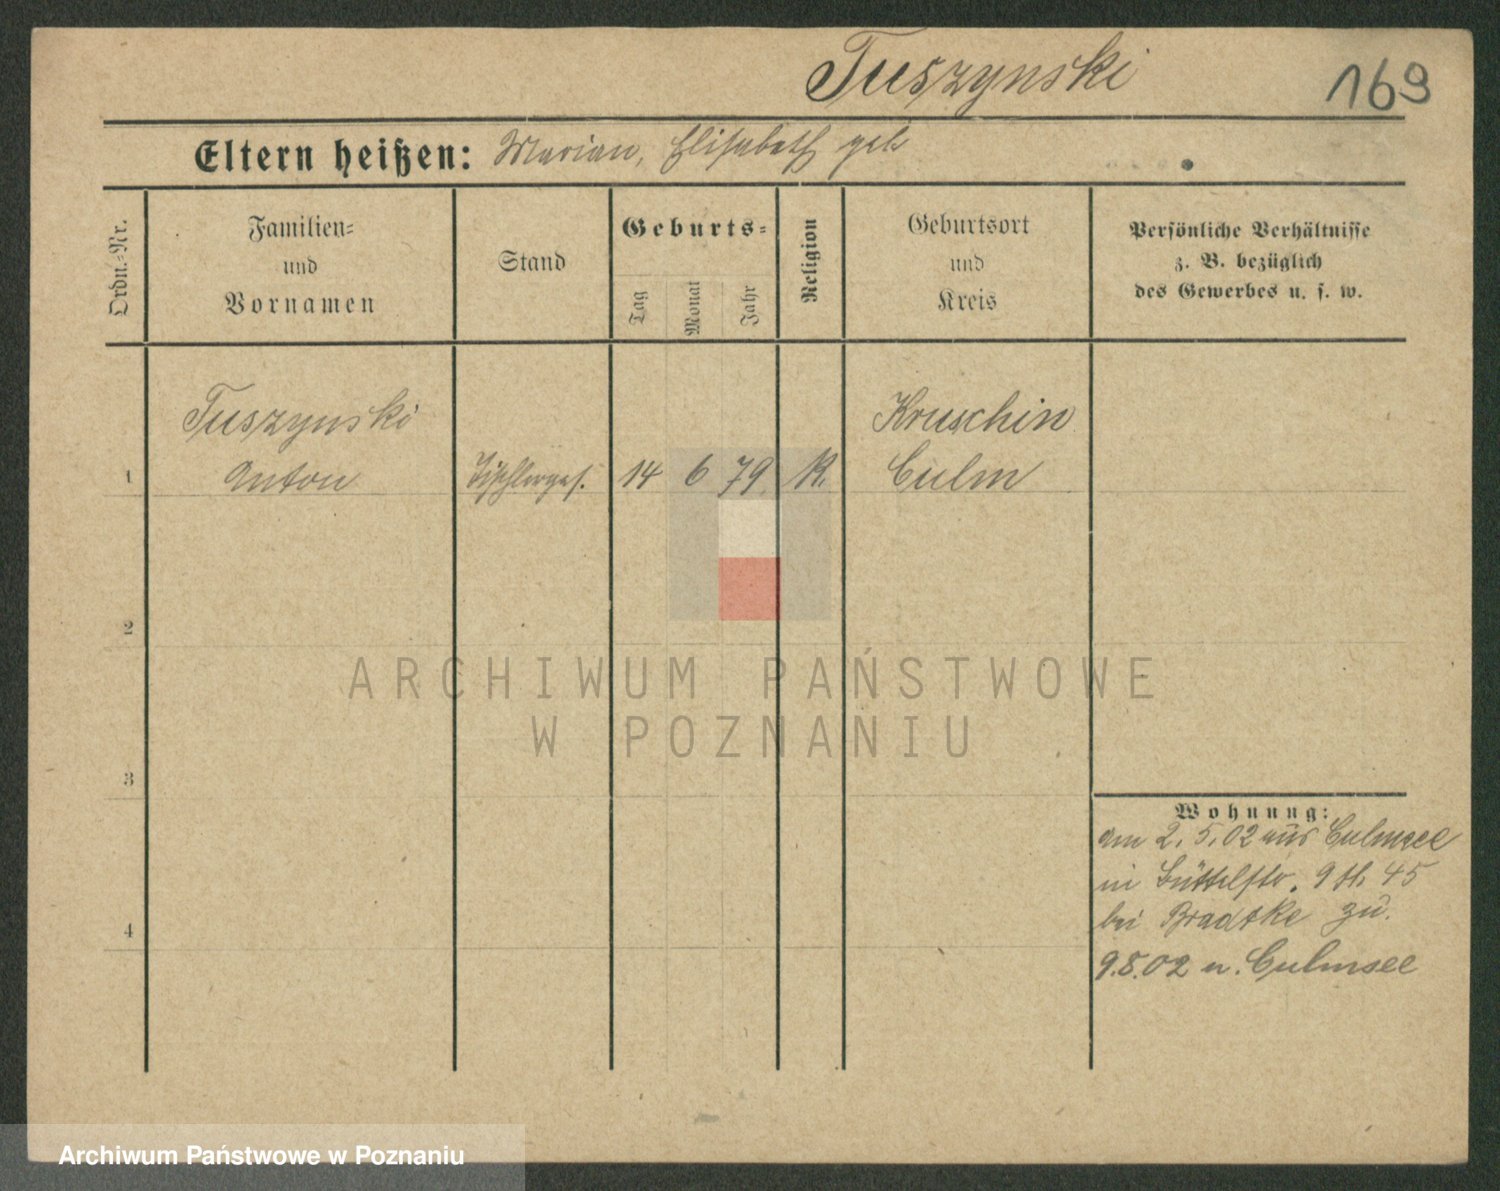 Tuszynski
169
Eltern heißen: Marian, Elisabeth geb
Ordn.-Nr.
Familien-
und
Vornamen
Stand
Geburts-
Tag
Monat
Jahr
Religion
Geburtsort
und
Kreis
Persönliche Verhältnisse
z. B. bezüglich
des Gewerbes u. s. w.
Tuszynski
Kruschin
1 Anton Tischlerges. 14 6 79 K. Culm
2
3
4
Wohnung:
am 2.5.02 aus Culmsee
in Büttelstr. 9 45
bei Bradtke zu.
9.8.02 n. Culmsee
ARCHIWUM PAŃSTWOWE
W POZNANIU
Archiwum Państwowe w Poznaniu